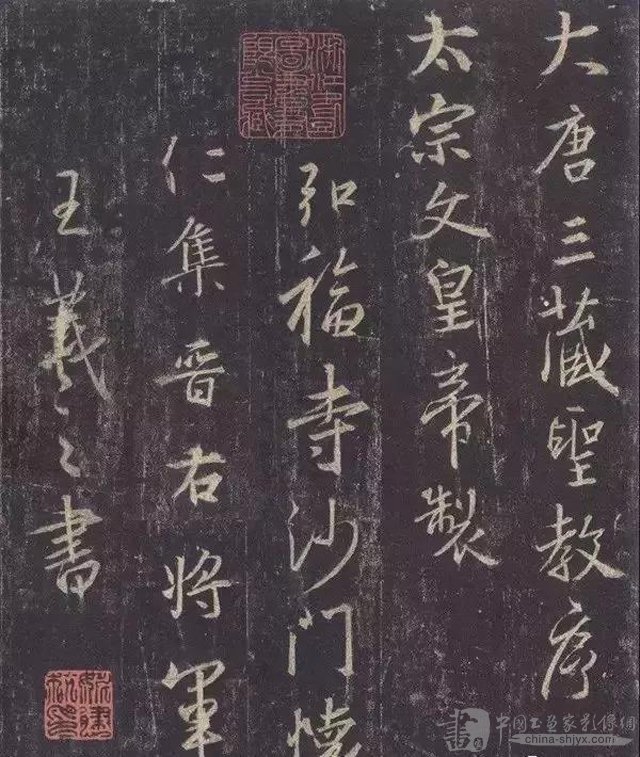 大唐三藏聖教序
太宗文皇帝製
弘福寺沙門懷
仁集晉右將軍
王羲之書
中國书画家影像網
china-shjyx.com